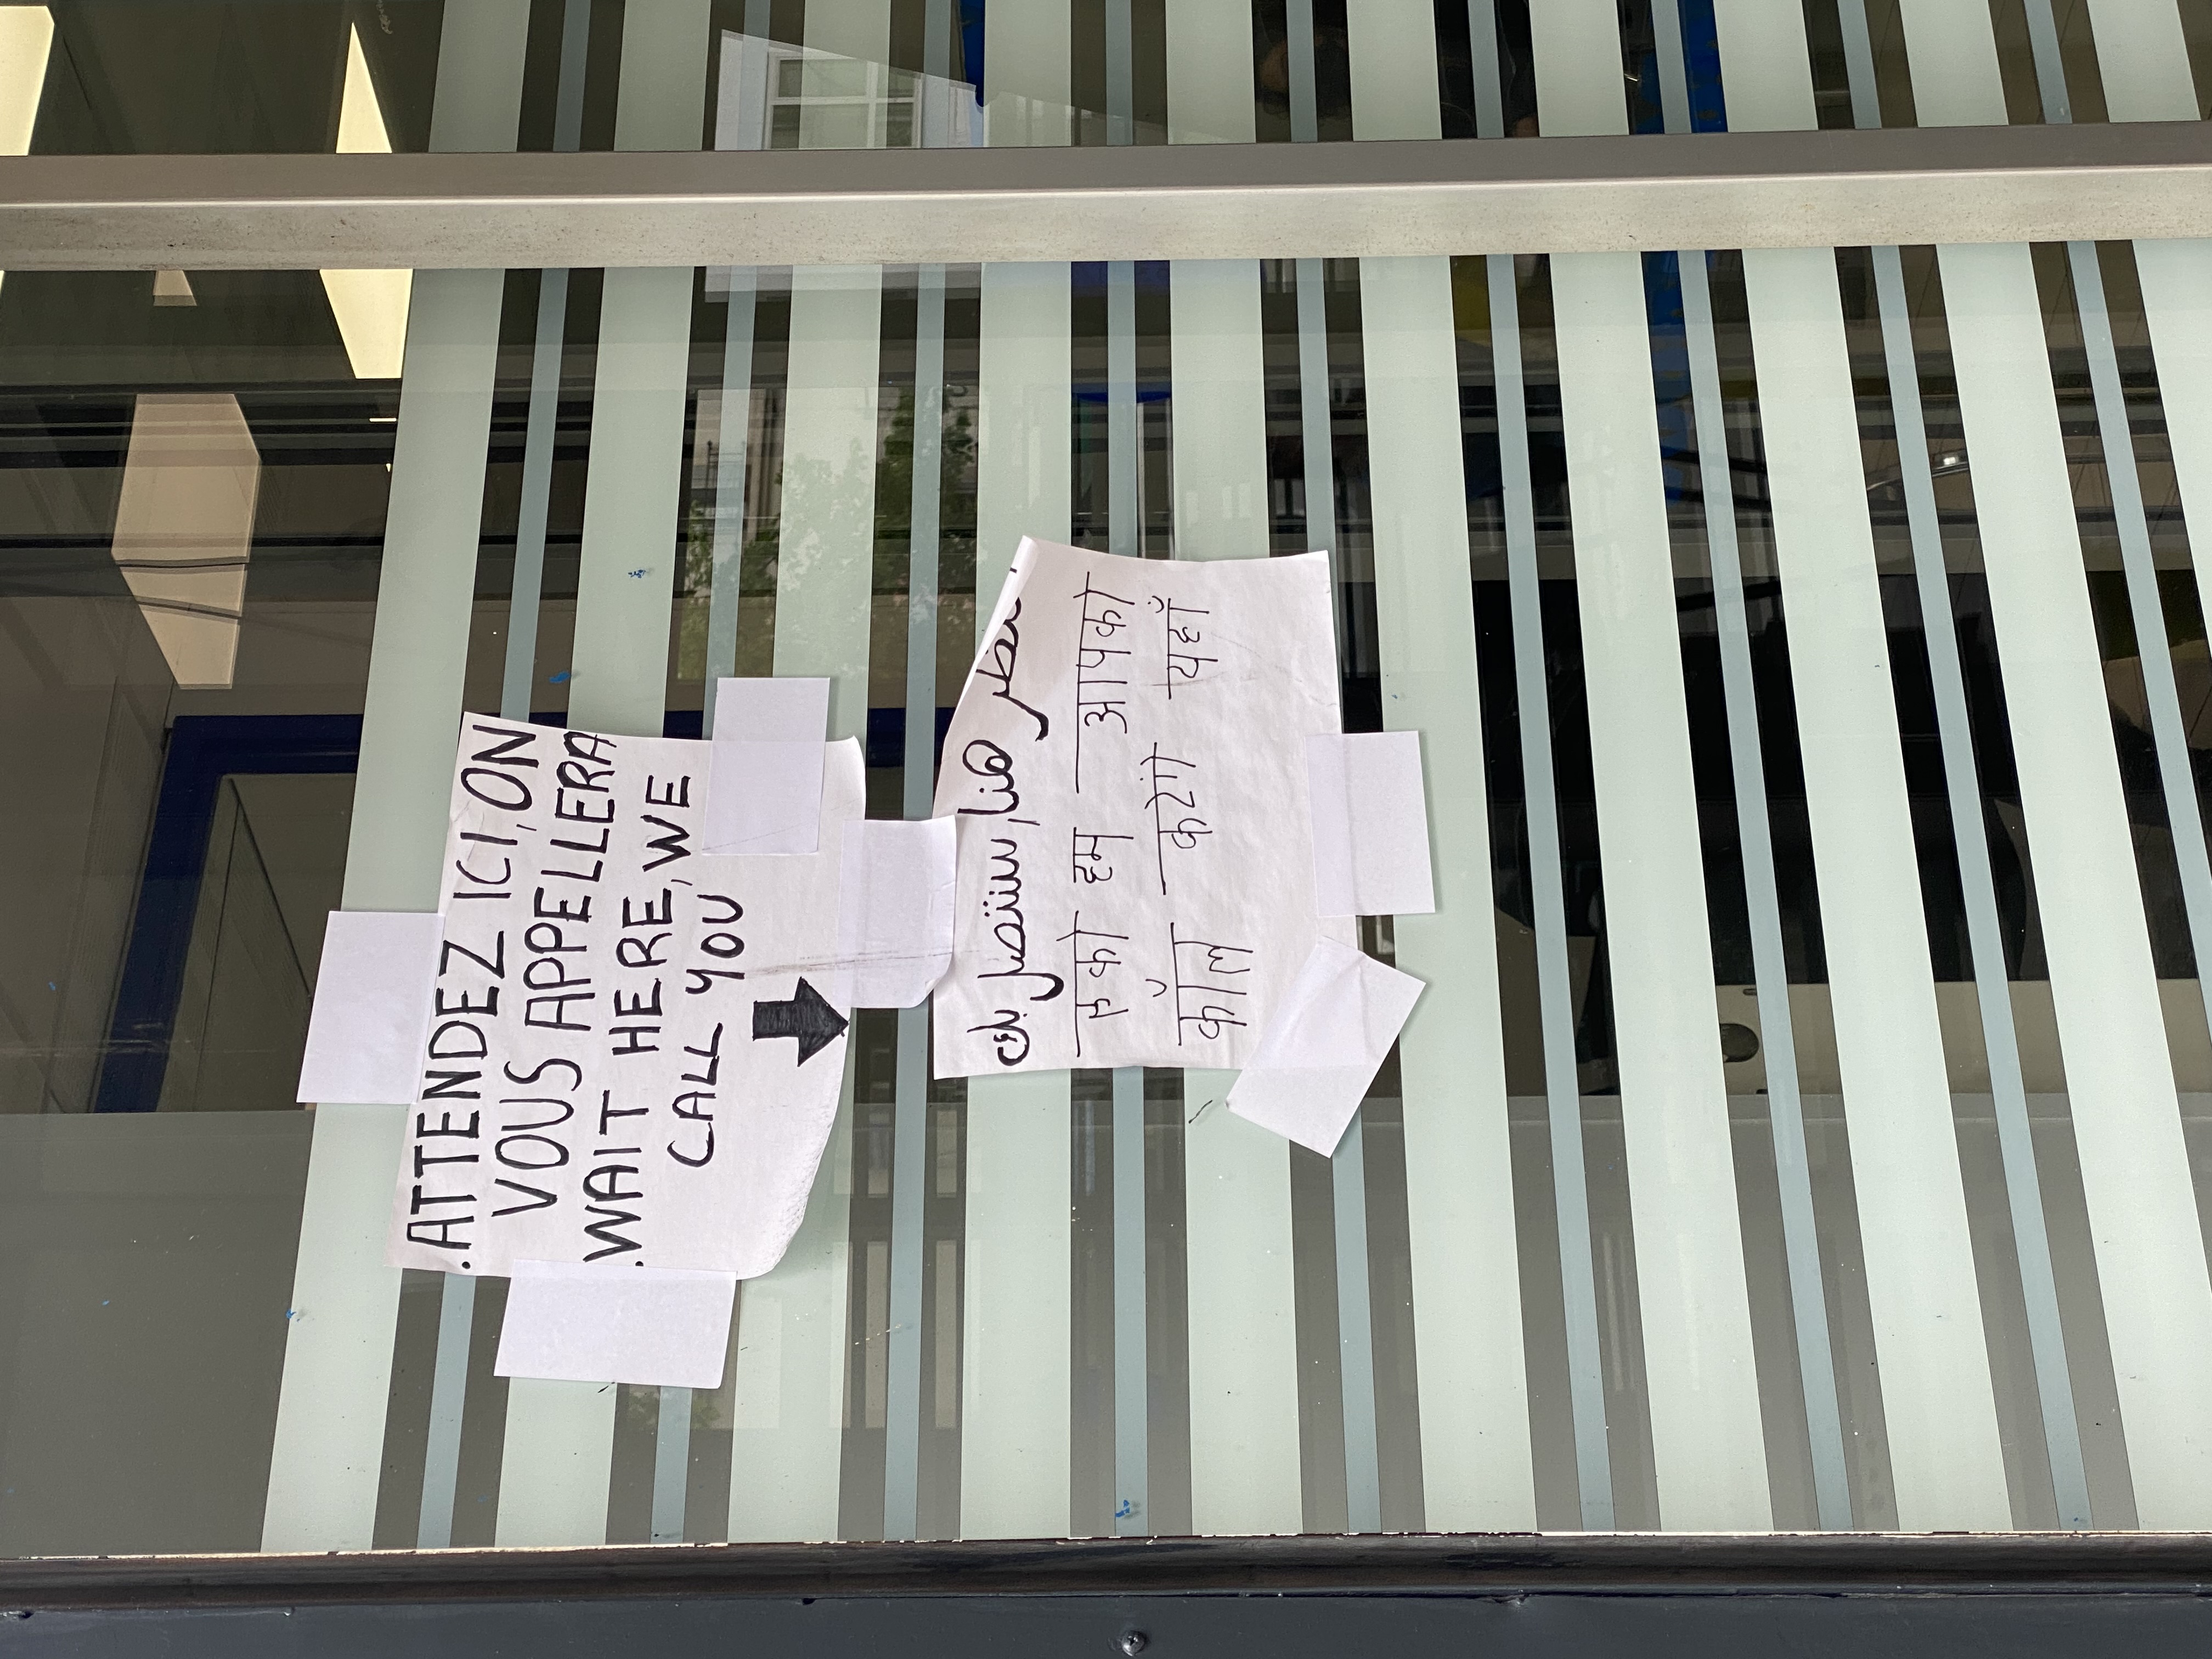 .ATTENDEZ ICI, ON
VOUS APPELLERA
.WAIT HERE, WE
CALL YOU
هنا, سنتصل بك
रुको हम आपको
कॉल करेंगे यहाँ